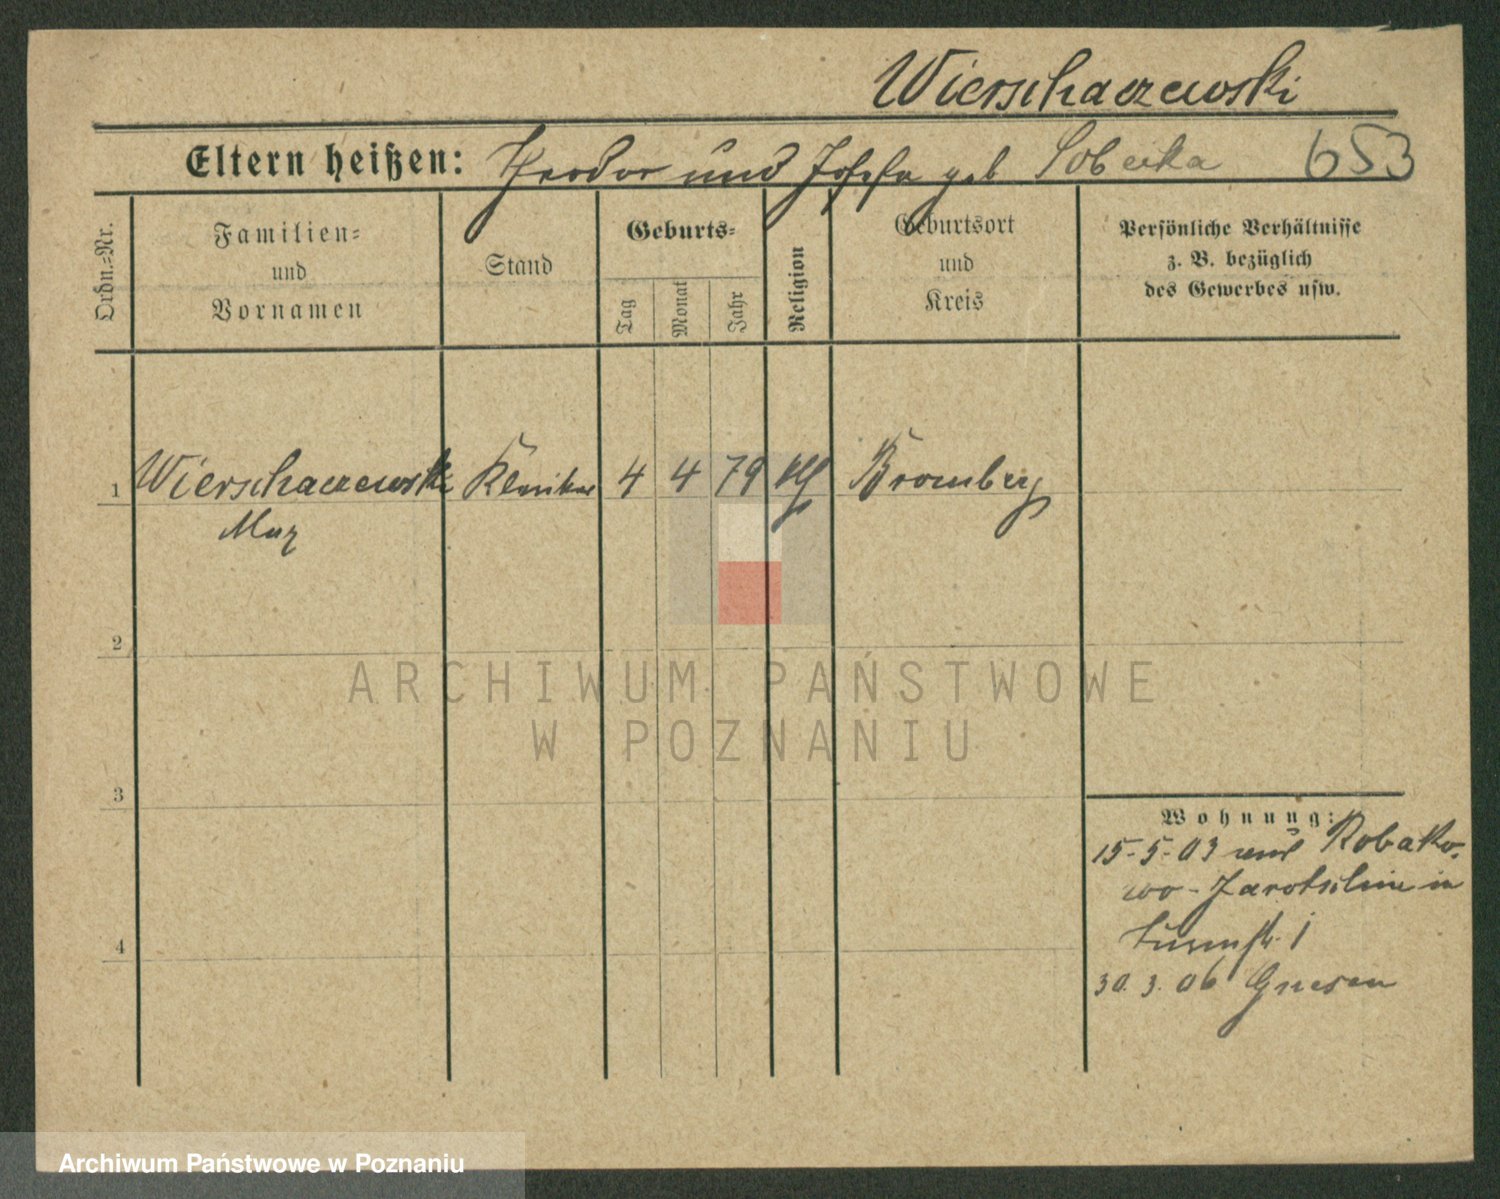 Wierschaczewski
Eltern heißen: Theodor und Josefa geb Sobecka 653
Ordn.-Nr.
Familien-
und
Vornamen
Stand
Geburts-
Tag
Monat
Jahr
Religion
Geburtsort
und
Kreis
Persönliche Verhältnisse
z. B. bezüglich
des Gewerbes usw.
1 Wierschaczewski Kleriker 4 4 79 Bromberg
Max
2
3
4
Wohnung:
15-5-03 aus Robako-
wo-Jarotschin in
Turmstr. 1
30. 3. 06 Gnesen
ARCHIWUM PAŃSTWOWE
W POZNANIU
Archiwum Państwowe w Poznaniu